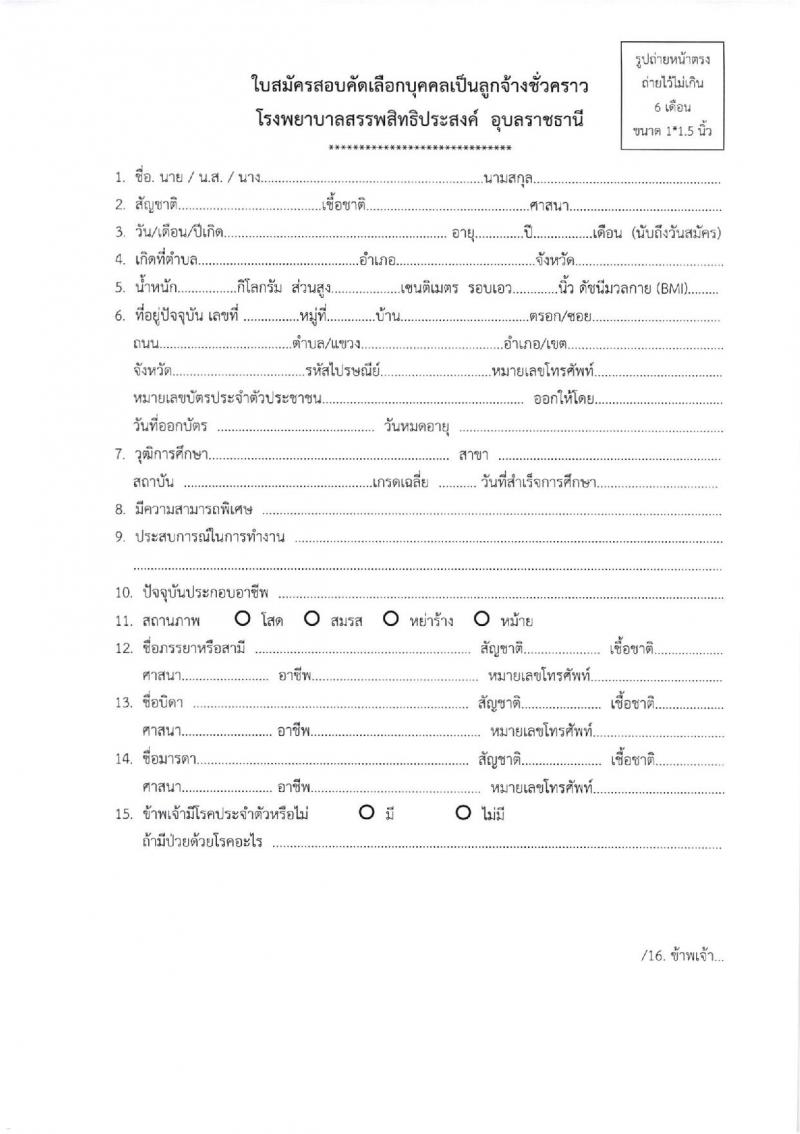 รูปถ่ายหน้าตรง
ถ่ายไว้ไม่เกิน
6 เดือน
ขนาด 1*1.5 นิ้ว
ใบสมัครสอบคัดเลือกบุคคลเป็นลูกจ้างชั่วคราว
โรงพยาบาลสรรพสิทธิประสงค์ อุบลราชธานี
******************************
1. ชื่อ. นาย / น.ส. / นาง..........................................นามสกุล..........................................
2. สัญชาติ..............................เชื้อชาติ..............................ศาสนา..............................
3. วัน/เดือน/ปีเกิด.......................................... อายุ............ปี..............เดือน (นับถึงวันสมัคร)
4. เกิดที่ตำบล..............................อำเภอ..............................จังหวัด..............................
5. น้ำหนัก..............กิโลกรัม ส่วนสูง................เซนติเมตร รอบเอว...........นิ้ว ดัชนีมวลกาย (BMI)........
6. ที่อยู่ปัจจุบัน เลขที่ ..............หมู่ที่............บ้าน..............................ตรอก/ซอย..............................
ถนน..............................ตำบล/แขวง..............................อำเภอ/เขต..............................
จังหวัด..............................รหัสไปรษณีย์..........................หมายเลขโทรศัพท์..............................
หมายเลขบัตรประจำตัวประชาชน.......................................... ออกให้โดย..............................
วันที่ออกบัตร .................................... วันหมดอายุ ..........................................
7. วุฒิการศึกษา.......................................... สาขา ..........................................
สถาบัน ..........................................เกรดเฉลี่ย .......... วันที่สำเร็จการศึกษา..............................
8. มีความสามารถพิเศษ ....................................................................................
9. ประสบการณ์ในการทำงาน ....................................................................................
................................................................................................................
10. ปัจจุบันประกอบอาชีพ ....................................................................................
11. สถานภาพ O โสด O สมรส O หย่าร้าง O หม้าย
12. ชื่อภรรยาหรือสามี .......................................... สัญชาติ.................... เชื้อชาติ..................
ศาสนา...................... อาชีพ.......................................... หมายเลขโทรศัพท์..............................
13. ชื่อบิดา .................................................... สัญชาติ.................... เชื้อชาติ..................
ศาสนา...................... อาชีพ.......................................... หมายเลขโทรศัพท์..............................
14. ชื่อมารดา.................................................... สัญชาติ.................... เชื้อชาติ..................
ศาสนา...................... อาชีพ.......................................... หมายเลขโทรศัพท์..............................
15. ข้าพเจ้ามีโรคประจำตัวหรือไม่ O มี O ไม่มี
ถ้ามีป่วยด้วยโรคอะไร ....................................................................................
/16. ข้าพเจ้า...